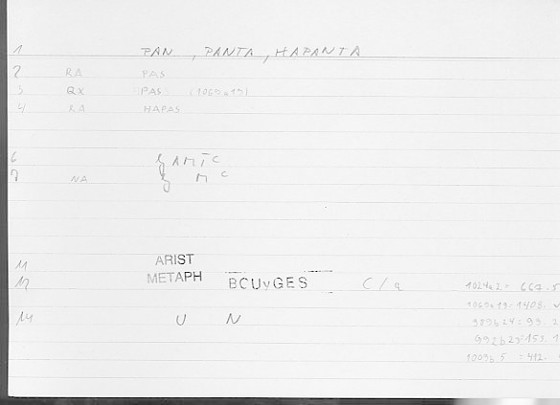 1 PAN, PANTA, HAPANTA
2 RA PAS
3 QX PAS (1069a19)
4 RA HAPAS
6 GAMTC
7 NA G MC
11 ARIST
12 METAPH BCUVGES C/a
14 U N
1024a2 = 667.5
1069a19: 1408.
989b24: 99.2
992b29: 153.1
1009b5 = 412.